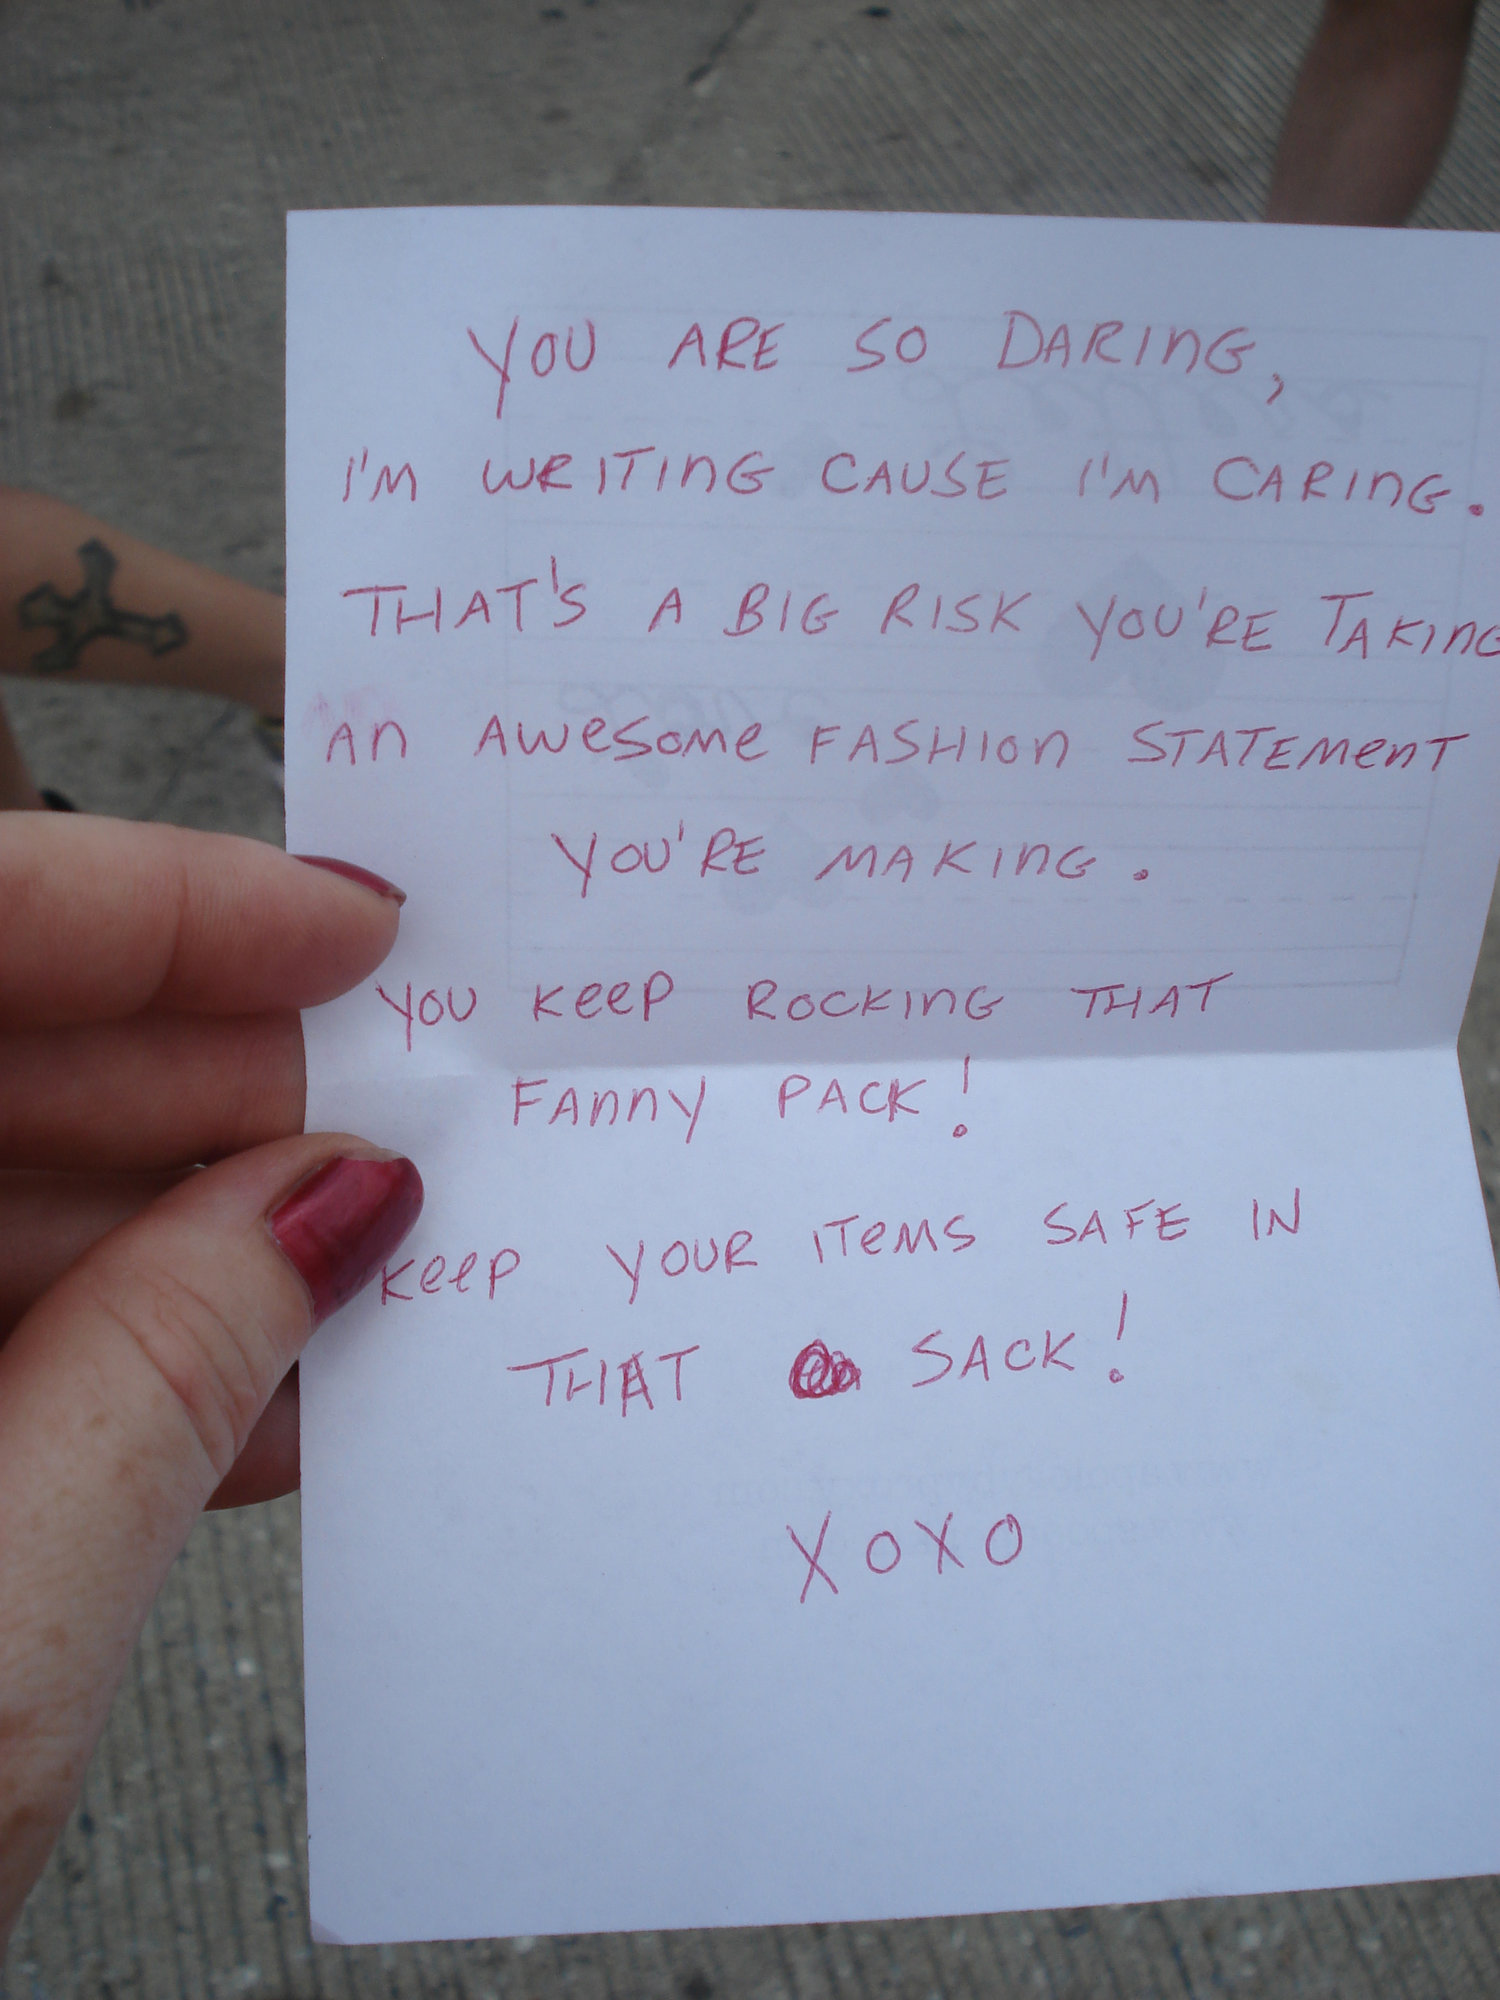 YOU ARE SO DARING,
I'M WRITING CAUSE I'M CARING.
THAT'S A BIG RISK YOU'RE TAKING
AN AWESOME FASHION STATEMENT
YOU'RE MAKING.
YOU KEEP ROCKING THAT
FANNY PACK!
KEEP YOUR ITEMS SAFE IN
THAT SACK!
XOXO